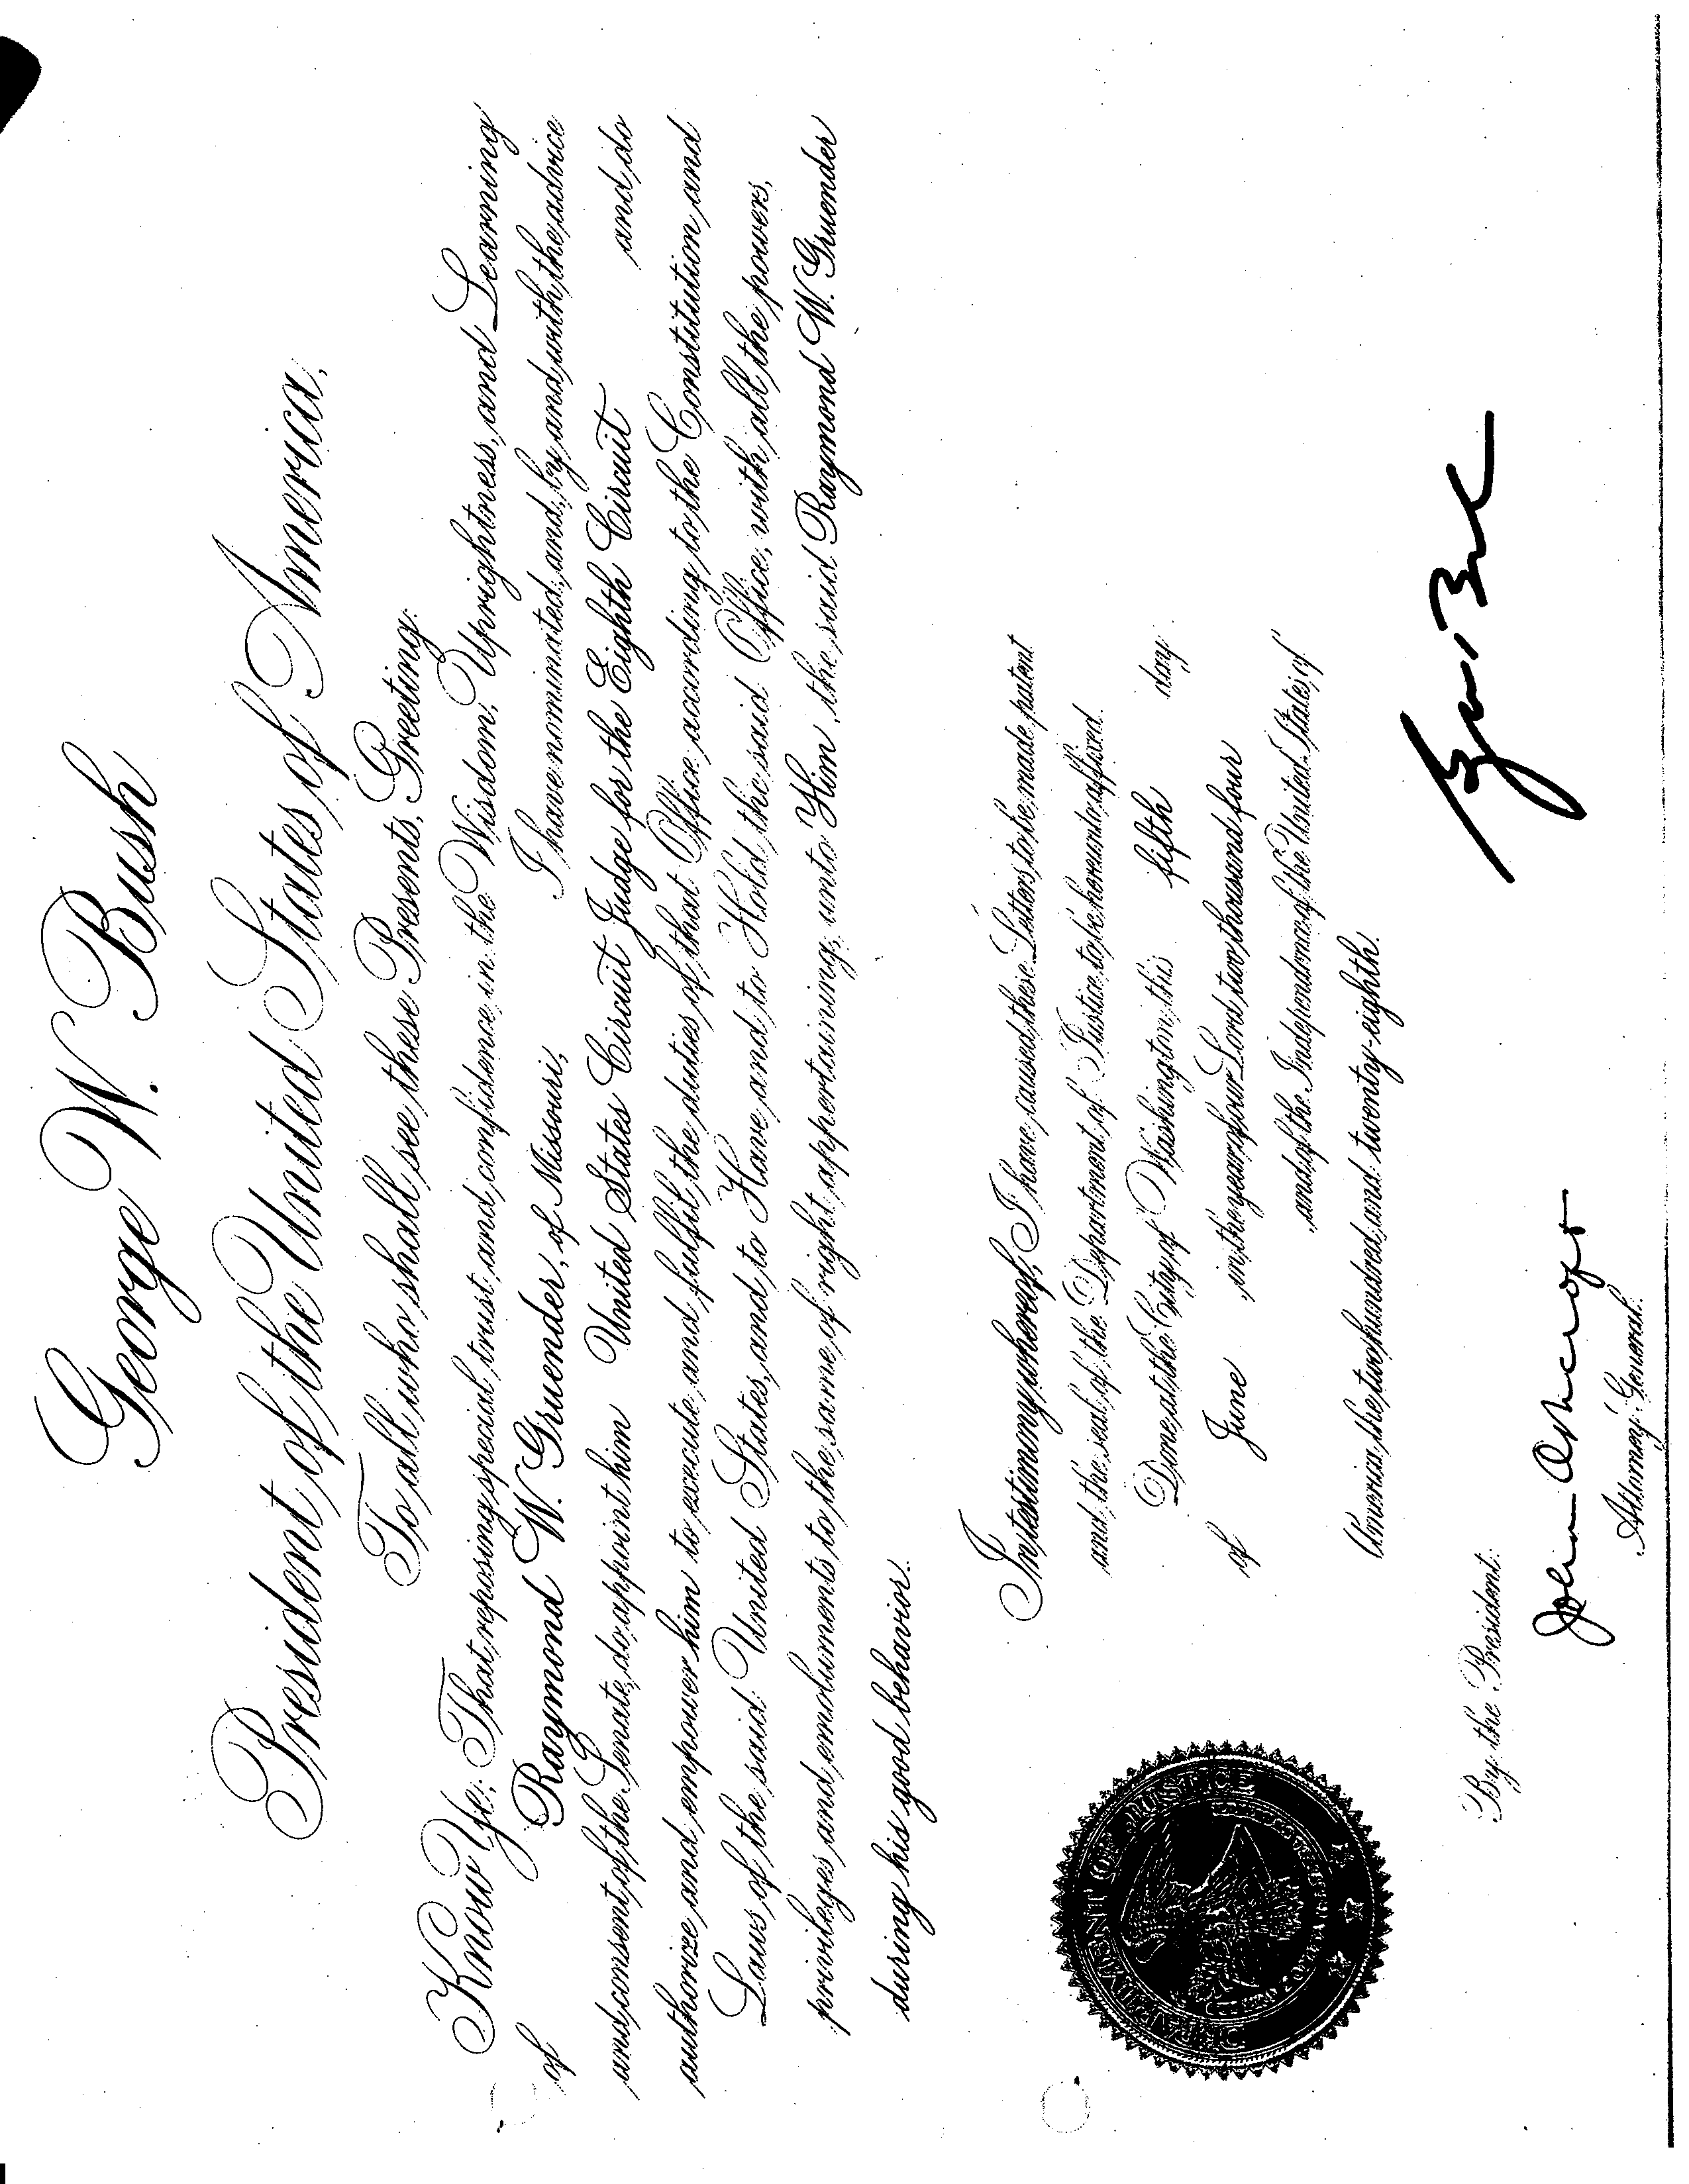 George W. Bush
President of the United States of America,
To all who shall see these Presents, Greeting:
Know Ye: That reposing special trust and confidence in the Wisdom, Uprightness, and Learning
of Raymond W. Gruender, of Missouri, I have nominated, and, by and with the advice
and consent of the Senate, do appoint him United States Circuit Judge for the Eighth Circuit and do
authorize and empower him to execute and fulfil the duties of that Office according to the Constitution and
Laws of the said United States, and to Have and to Hold the said Office, with all the powers,
privileges and emoluments to the same of right appertaining, unto Him, the said Raymond W. Gruender
during his good behavior.
In testimony whereof, I have caused these Letters to be made patent
and the seal of the Department of Justice to be hereunto affixed.
Done at the City of Washington this fifth day
of June in the year of our Lord two thousand four
and of the Independence of the United States of
America the two hundred and twenty-eighth.
George Bush
By the President:
John Ashcroft
Attorney General.
DEPARTMENT OF JUSTICE